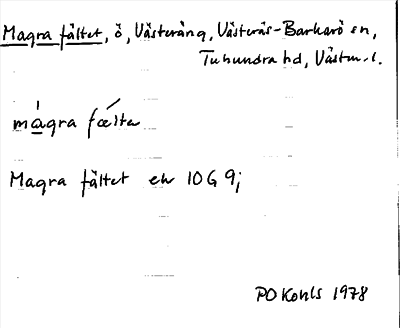 Magra fältet, ö, Västeräng, Västerås-Barkarö sn,
Tuhundra hd, Västm. l.
mágra fǽlta
Magra fältet ek 10G 9j
PO Kohls 1978